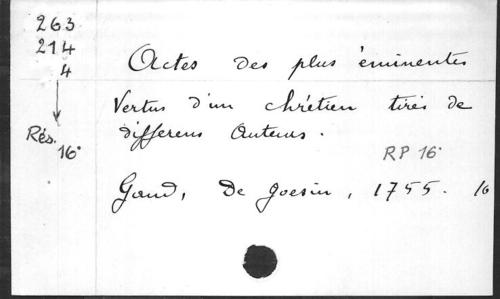 263
214
4
Rés.
16°
Actes des plus éminentes
Vertus d'un chrétien tirés de
differens Auteurs.
RP 16°
Gand, De Goesin, 1755. 16